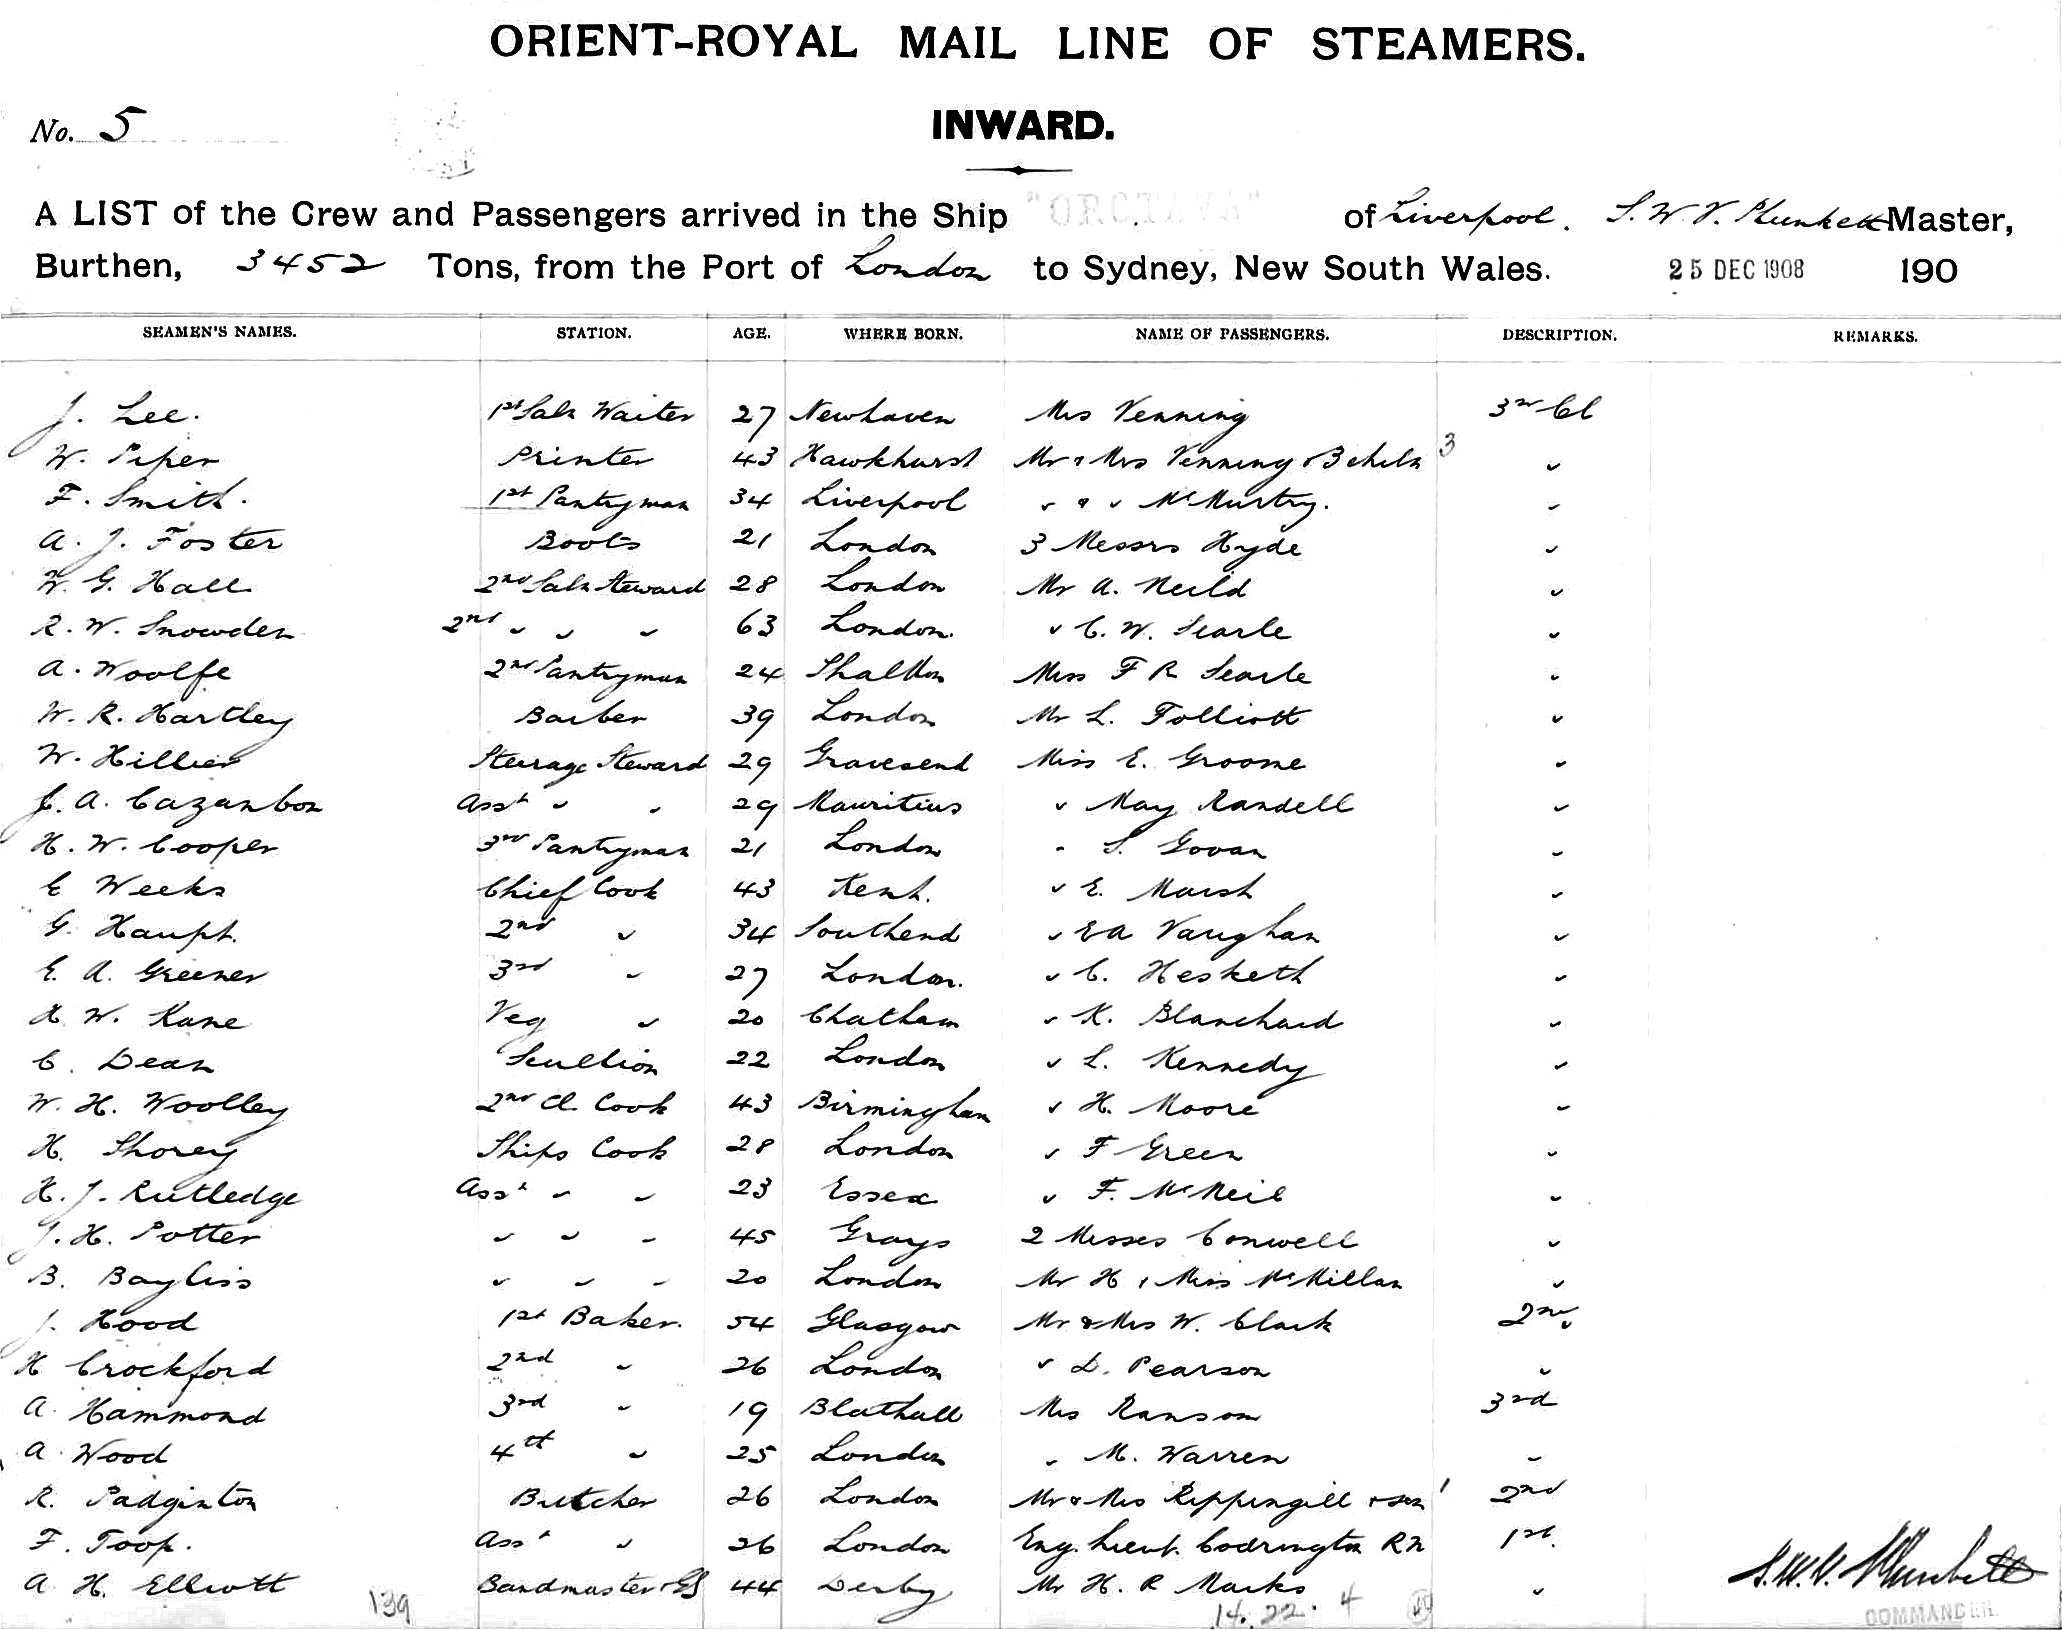 ORIENT-ROYAL MAIL LINE OF STEAMERS.
No. 5
INWARD.
A LIST of the Crew and Passengers arrived in the Ship "OROTAVA" of Liverpool. S. W. V. Plunkett Master,
Burthen, 3452 Tons, from the Port of London to Sydney, New South Wales. 25 DEC 1908 190
SEAMEN'S NAMES. STATION. AGE. WHERE BORN. NAME OF PASSENGERS. DESCRIPTION. REMARKS.
J. Lee. 1st Saln Waiter 27 Newhaven Mrs Venning 3rd Cl
W. Piper Printer 43 Hawkhurst Mr & Mrs Venning & 3 Chiln 3 "
F. Smith. 1st Pantryman 34 Liverpool " & " McMurtry. "
A. J. Foster Boots 21 London 3 Messrs Hyde "
W. G. Hall 2nd Saln Steward 28 London Mr A. Neild "
R. W. Snowden 2nd " " " 63 London. " C. W. Searle "
A. Woolfe 2nd Pantryman 24 Shaldon Miss F R Searle "
W. R. Hartley Barber 39 London Mr L. Folliott "
W. Hillier Steerage Steward 29 Gravesend Miss E. Groome "
J. A. Cazanbon Asst " " 29 Mauritius " May Randell "
H. W. Cooper 3rd Pantryman 21 London " S. Govan "
E Weeks Chief Cook 43 Kent. " E. Marsh "
G. Haupt. 2nd " 34 Southend " E A Vaughan "
E. A. Greener 3rd " 27 London. " C. Hesketh "
H. W. Kane Veg " 20 Chatham " K. Blanchard "
C. Dean Scullion 22 London " L. Kennedy "
W. H. Woolley 2nd Cl. Cook 43 Birmingham " H. Moore "
H. Shorey Ships Cook 28 London " F Green "
H. J. Rutledge Asst " " 23 Essex " F. McNeil "
J. H. Potter " " " 45 Grays 2 Misses Conwell "
B. Bayliss " " " 20 London Mr H & Miss McMillan "
J. Hood 1st Baker. 54 Glasgow Mr & Mrs W. Clark 2nd "
H Crockford 2nd " 26 London " D. Pearson "
A Hammond 3rd " 19 Mrs Ransom 3rd
A. Wood 4th " 25 London " M. Warren "
R. Padginton Butcher 26 London Mr & Mrs Rippengill & son 1 2nd
F. Toop. Asst " 26 London Eng. Lieut. Codrington RN 1st.
A. H. Elliott Bandmaster & GS 44 Derby Mr H. R Marks "
S. W. V. Plunkett
139 14. 22. 4
COMMANDER.